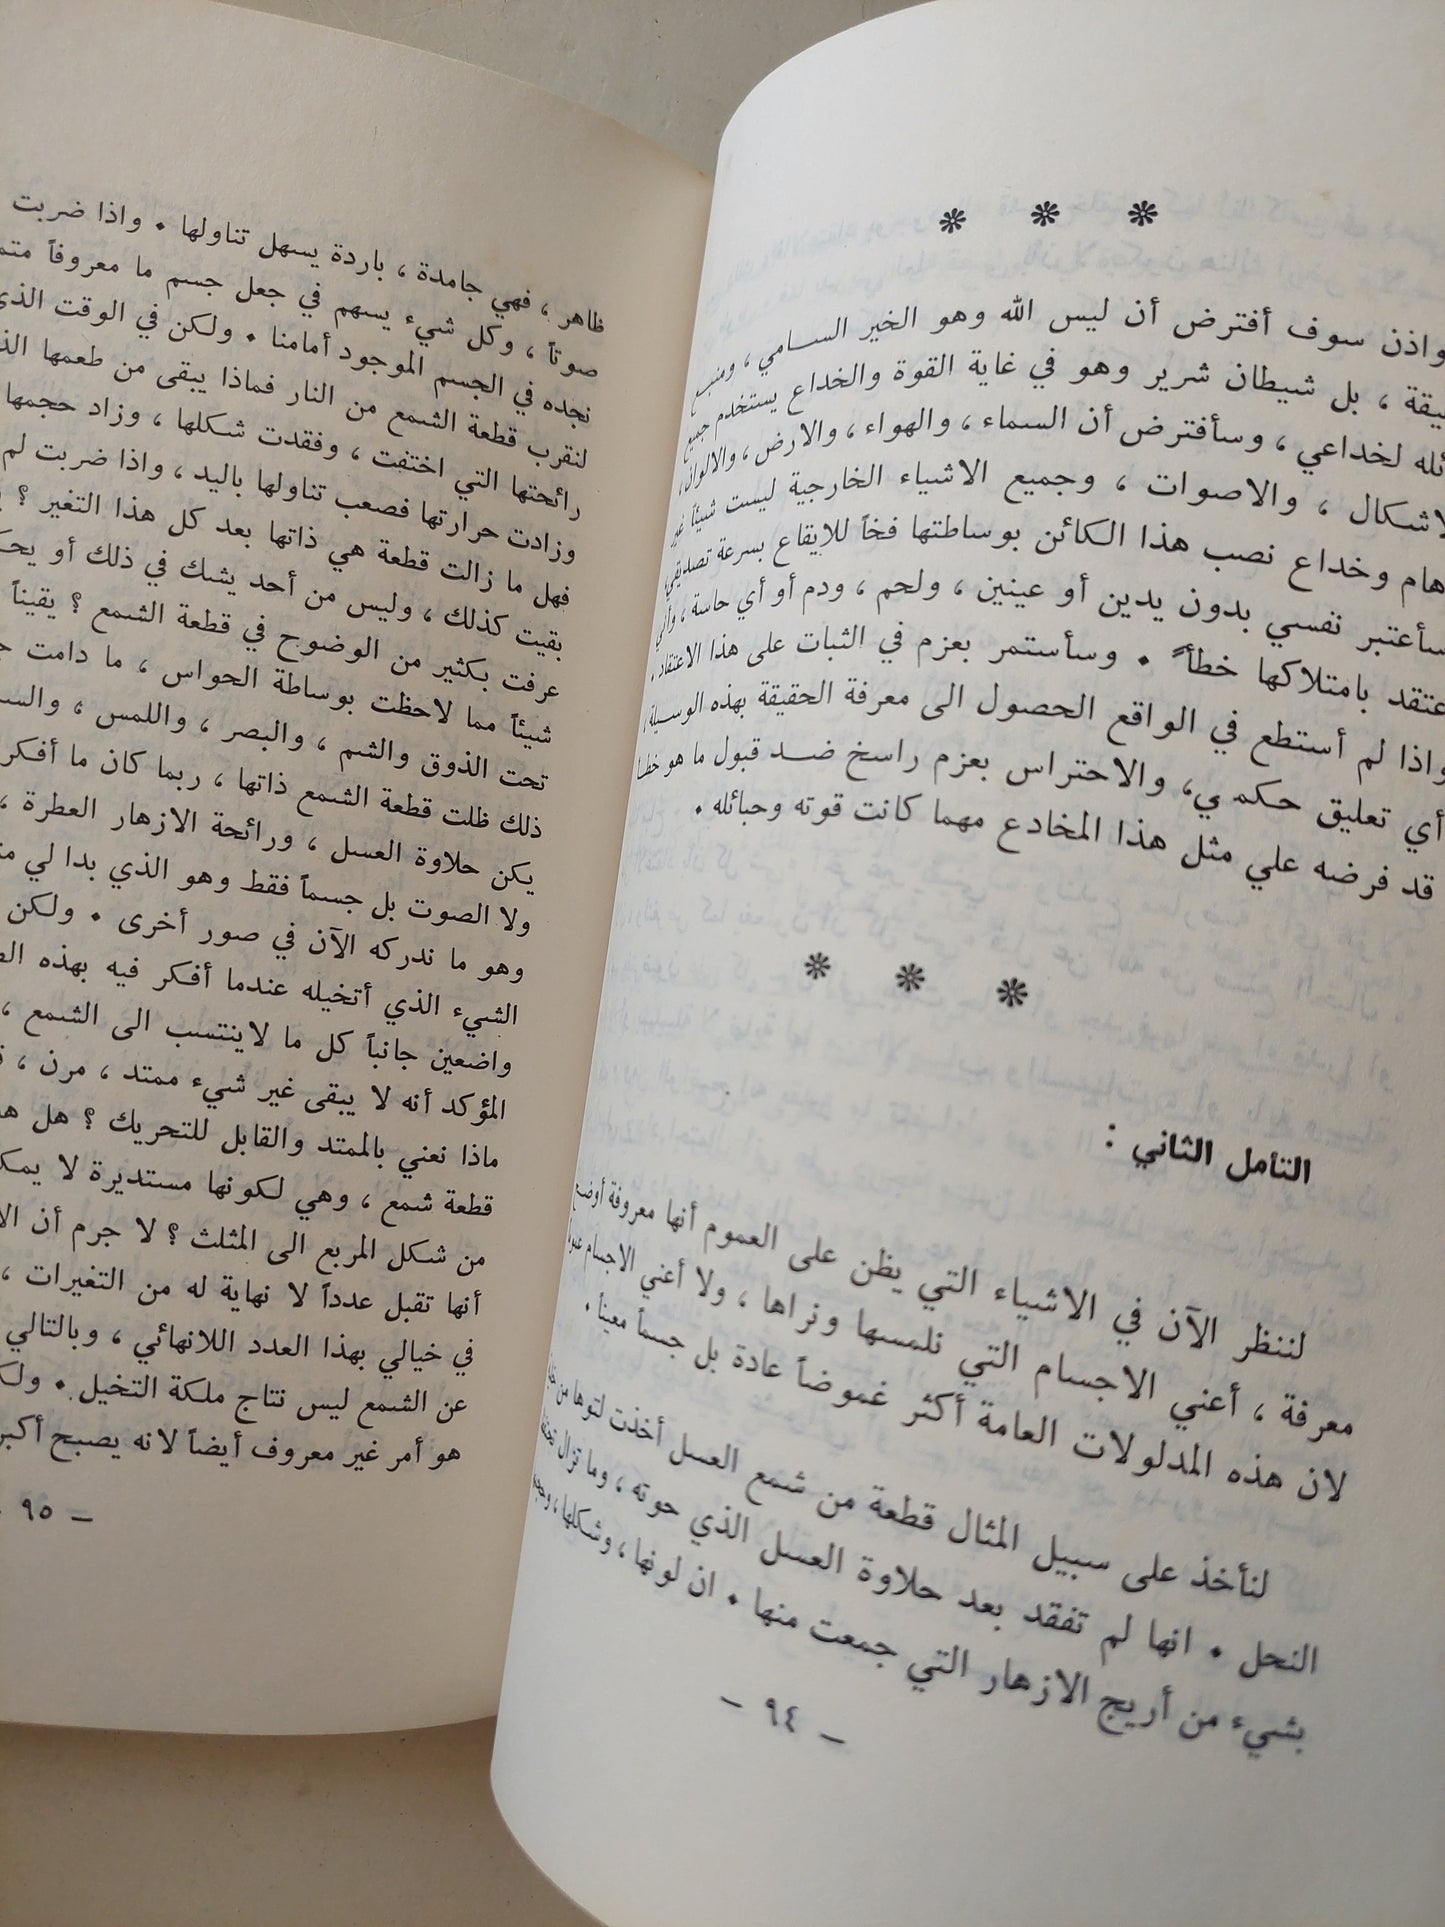 ❊ ❊ ❊
واذن سوف أفترض أن ليس الله وهو الخير السامي ، ومنبع
بل شيطان شرير وهو في غاية القوة والخداع يستخدم جميع
لخداعي ، وسأفترض أن السماء ، والهواء ، والارض ، والالوان ،
والاصوات ، وجميع الاشياء الخارجية ليست شيئاً غير
وخداع نصب هذا الكائن بوساطتها فخاً للايقاع بسرعة تصديقي
سأعتبر نفسي بدون يدين أو عينين ، ولحم ، ودم أو أي حاسة ، وأني
بامتلاكها خطأ • وسأستمر بعزم في الثبات على هذا الاعتقاد .
واذا لم أستطع في الواقع الحصول الى معرفة الحقيقة بهذه الوسيلة ،
أي تعليق حكمي، والاحتراس بعزم راسخ ضد قبول ما هو خطأ
قد فرضه علي مثل هذا المخادع مهما كانت قوته وحبائله •
❊ ❊ ❊
التأمل الثاني :
لننظر الآن في الاشياء التي يظن على العموم أنها معروفة أوضح
معرفة ، أعني الاجسام التي نلمسها ونراها ، ولا أعني الاجسام عموماً
لان هذه المدلولات العامة أكثر غموضاً عادة بل جسماً معيناً •
لنأخذ على سبيل المثال قطعة من شمع العسل أخذت لتوها من
النحل • انها لم تفقد بعد حلاوة العسل الذي حوته ، وما تزال
بشيء من أريج الازهار التي جمعت منها • ان لونها ، وشكلها ،
– ٩٤ –
ظاهر ، فهي جامدة ، باردة يسهل تناولها • واذا ضربت
صوتاً ، وكل شيء يسهم في جعل جسم ما معروفاً
نجده في الجسم الموجود أمامنا • ولكن في الوقت الذي
لنقرب قطعة الشمع من النار فماذا يبقى من طعمها
رائحتها التي اختفت ، وفقدت شكلها ، وزاد حجمها
وزادت حرارتها فصعب تناولها باليد ، واذا ضربت لم
فهل ما زالت قطعة هي ذاتها بعد كل هذا التغير ؟
بقيت كذلك ، وليس من أحد يشك في ذلك أو
عرفت بكثير من الوضوح في قطعة الشمع ؟ يقيناً
شيئاً مما لاحظت بوساطة الحواس ، ما دامت
تحت الذوق والشم ، والبصر ، واللمس ،
ذلك ظلت قطعة الشمع ذاتها ، ربما كان ما أفكر
يكن حلاوة العسل ، ورائحة الازهار العطرة ،
ولا الصوت بل جسماً فقط وهو الذي بدا لي
وهو ما ندركه الآن في صور أخرى • ولكن
الشيء الذي أتخيله عندما أفكر فيه بهذه
واضعين جانباً كل ما لاينتسب الى الشمع ،
المؤكد أنه لا يبقى غير شيء ممتد ، مرن ،
ماذا نعني بالممتد والقابل للتحريك ؟ هل
قطعة شمع ، وهي لكونها مستديرة لا
من شكل المربع الى المثلث ؟ لا جرم أن
أنها تقبل عدداً لا نهاية له من التغيرات ،
في خيالي بهذا العدد اللانهائي ، وبالتالي
عن الشمع ليس نتاج ملكة التخيل •
هو أمر غير معروف أيضاً لانه يصبح أكبر
– ٩٥ –